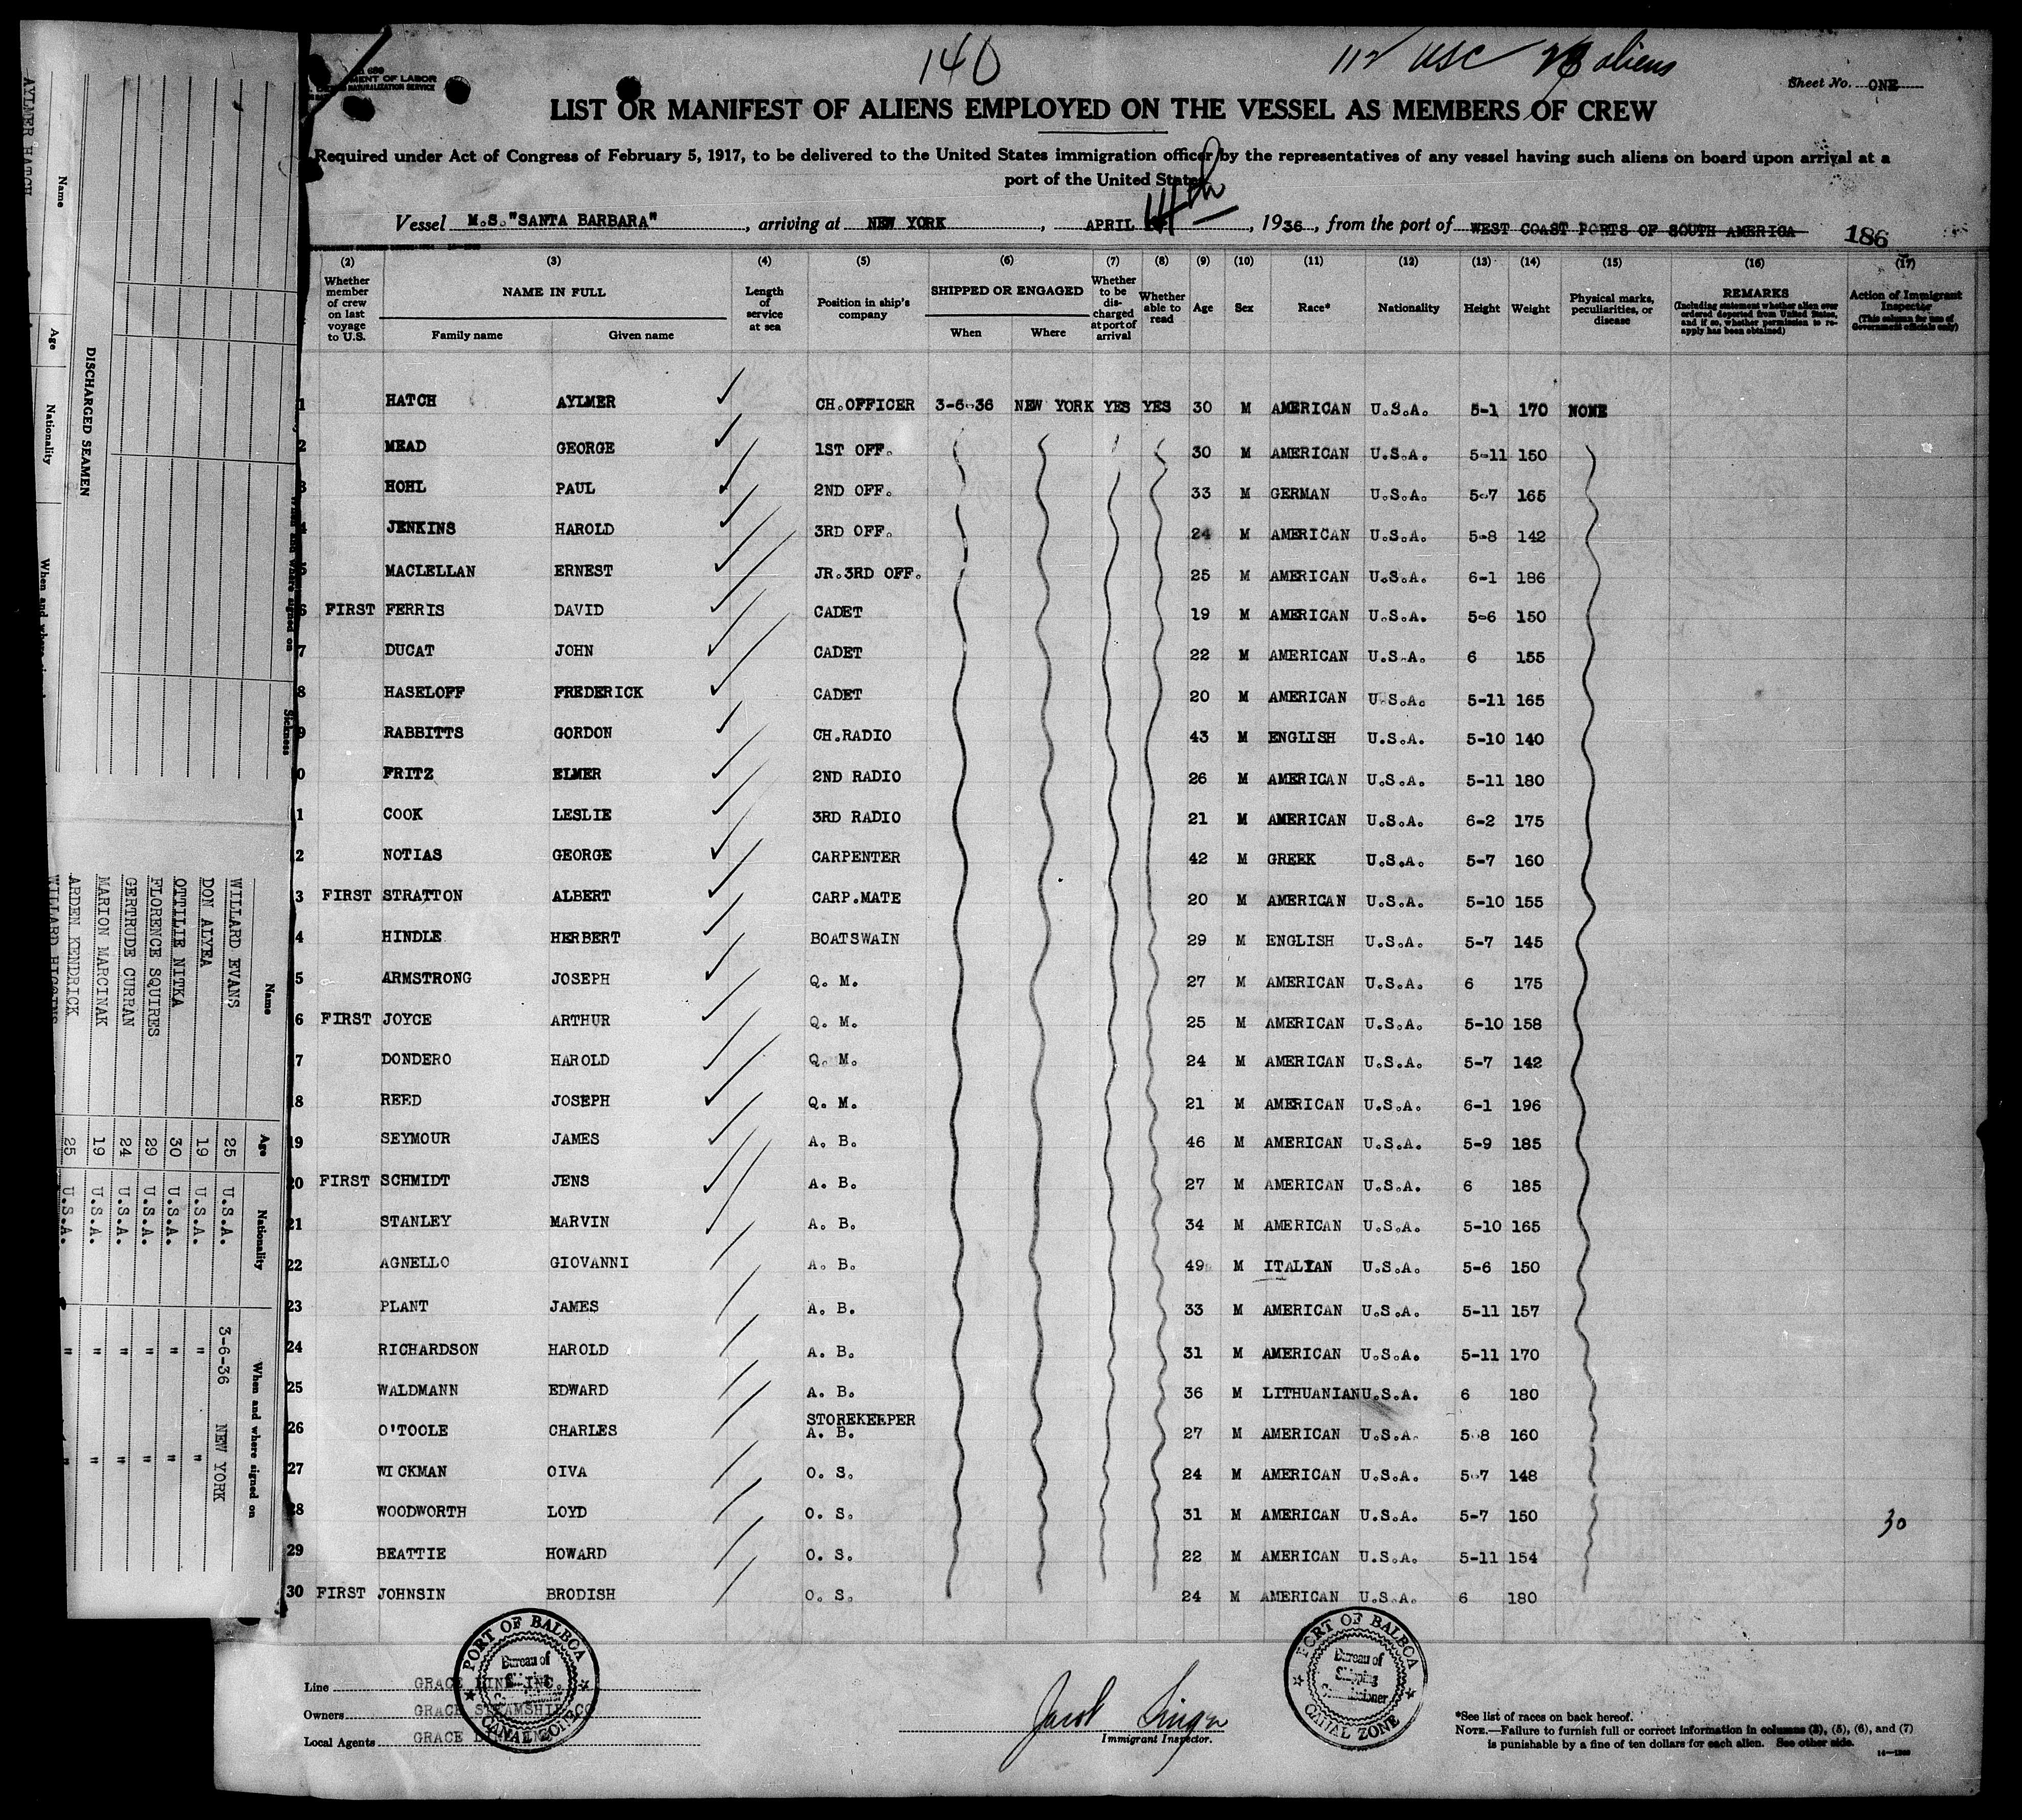 140
112 USC 28 aliens
Sheet No. ONE
MENT OF LABOR
NATURALIZATION SERVICE
LIST OR MANIFEST OF ALIENS EMPLOYED ON THE VESSEL AS MEMBERS OF CREW
Required under Act of Congress of February 5, 1917, to be delivered to the United States immigration officer by the representatives of any vessel having such aliens on board upon arrival at a
port of the United States
Vessel M.S. "SANTA BARBARA", arriving at NEW YORK, APRIL 14th, 1936, from the port of WEST COAST PORTS OF SOUTH AMERICA 186
(2) (3) (4) (5) (6) (7) (8) (9) (10) (11) (12) (13) (14) (15) (16) (17)
Whether member of crew on last voyage to U.S.
NAME IN FULL
Family name Given name
Length of service at sea
Position in ship's company
SHIPPED OR ENGAGED
When Where
Whether to be discharged at port of arrival
Whether able to read
Age Sex Race* Nationality Height Weight
Physical marks, peculiarities, or disease
REMARKS
(Including statement whether alien ever ordered deported from United States, and if so, whether permission to reapply has been obtained)
Action of Immigrant Inspector
(This column for use of Government officials only)
1 HATCH AYLMER CH.OFFICER 3-6-36 NEW YORK YES YES 30 M AMERICAN U.S.A. 5-1 170 NONE
2 MEAD GEORGE 1ST OFF. 30 M AMERICAN U.S.A. 5-11 150
3 HOHL PAUL 2ND OFF. 33 M GERMAN U.S.A. 5-7 165
4 JENKINS HAROLD 3RD OFF. 24 M AMERICAN U.S.A. 5-8 142
5 MACLELLAN ERNEST JR.3RD OFF. 25 M AMERICAN U.S.A. 6-1 186
6 FIRST FERRIS DAVID CADET 19 M AMERICAN U.S.A. 5-6 150
7 DUCAT JOHN CADET 22 M AMERICAN U.S.A. 6 155
8 HASELOFF FREDERICK CADET 20 M AMERICAN U.S.A. 5-11 165
9 RABBITTS GORDON CH.RADIO 43 M ENGLISH U.S.A. 5-10 140
0 FRITZ ELMER 2ND RADIO 26 M AMERICAN U.S.A. 5-11 180
1 COOK LESLIE 3RD RADIO 21 M AMERICAN U.S.A. 6-2 175
2 NOTIAS GEORGE CARPENTER 42 M GREEK U.S.A. 5-7 160
3 FIRST STRATTON ALBERT CARP.MATE 20 M AMERICAN U.S.A. 5-10 155
4 HINDLE HERBERT BOATSWAIN 29 M ENGLISH U.S.A. 5-7 145
5 ARMSTRONG JOSEPH Q. M. 27 M AMERICAN U.S.A. 6 175
6 FIRST JOYCE ARTHUR Q. M. 25 M AMERICAN U.S.A. 5-10 158
7 DONDERO HAROLD Q. M. 24 M AMERICAN U.S.A. 5-7 142
18 REED JOSEPH Q. M. 21 M AMERICAN U.S.A. 6-1 196
19 SEYMOUR JAMES A. B. 46 M AMERICAN U.S.A. 5-9 185
20 FIRST SCHMIDT JENS A. B. 27 M AMERICAN U.S.A. 6 185
21 STANLEY MARVIN A. B. 34 M AMERICAN U.S.A. 5-10 165
22 AGNELLO GIOVANNI A. B. 49 M ITALIAN U.S.A. 5-6 150
23 PLANT JAMES A. B. 33 M AMERICAN U.S.A. 5-11 157
24 RICHARDSON HAROLD A. B. 31 M AMERICAN U.S.A. 5-11 170
25 WALDMANN EDWARD A. B. 36 M LITHUANIAN U.S.A. 6 180
26 O'TOOLE CHARLES STOREKEEPER A. B. 27 M AMERICAN U.S.A. 5-8 160
27 WICKMAN OIVA O. S. 24 M AMERICAN U.S.A. 5-7 148
28 WOODWORTH LOYD O. S. 31 M AMERICAN U.S.A. 5-7 150
30
29 BEATTIE HOWARD O. S. 22 M AMERICAN U.S.A. 5-11 154
30 FIRST JOHNSIN BRODISH O. S. 24 M AMERICAN U.S.A. 6 180
Line GRACE LINE INC.
Owners GRACE STEAMSHIP CO
Local Agents GRACE LINE INC
PORT OF BALBOA
Bureau of
Shipping
Commissioner
CANAL ZONE
Jacob Singer
Immigrant Inspector.
PORT OF BALBOA
Bureau of
Shipping
Commissioner
CANAL ZONE
*See list of races on back hereof.
NOTE.—Failure to furnish full or correct information in columns (2), (5), (6), and (7)
is punishable by a fine of ten dollars for each alien. See other side.
DISCHARGED SEAMEN
Name Age Nationality When and where signed on Sickness
AYLMER HATCH
Name Age Nationality When and where signed on
WILLARD EVANS 25 U.S.A. 3-6-36 NEW YORK
DON ALYEA 19 U.S.A. " "
OTTILIE NITKA 30 U.S.A. " "
FLORENCE SQUIRES 29 U.S.A. " "
GERTRUDE CURRAN 24 U.S.A. " "
MARION MARCINAK 19 U.S.A. " "
ARDEN KENDRICK 25 U.S.A. " "
WILLARD HIGGINS